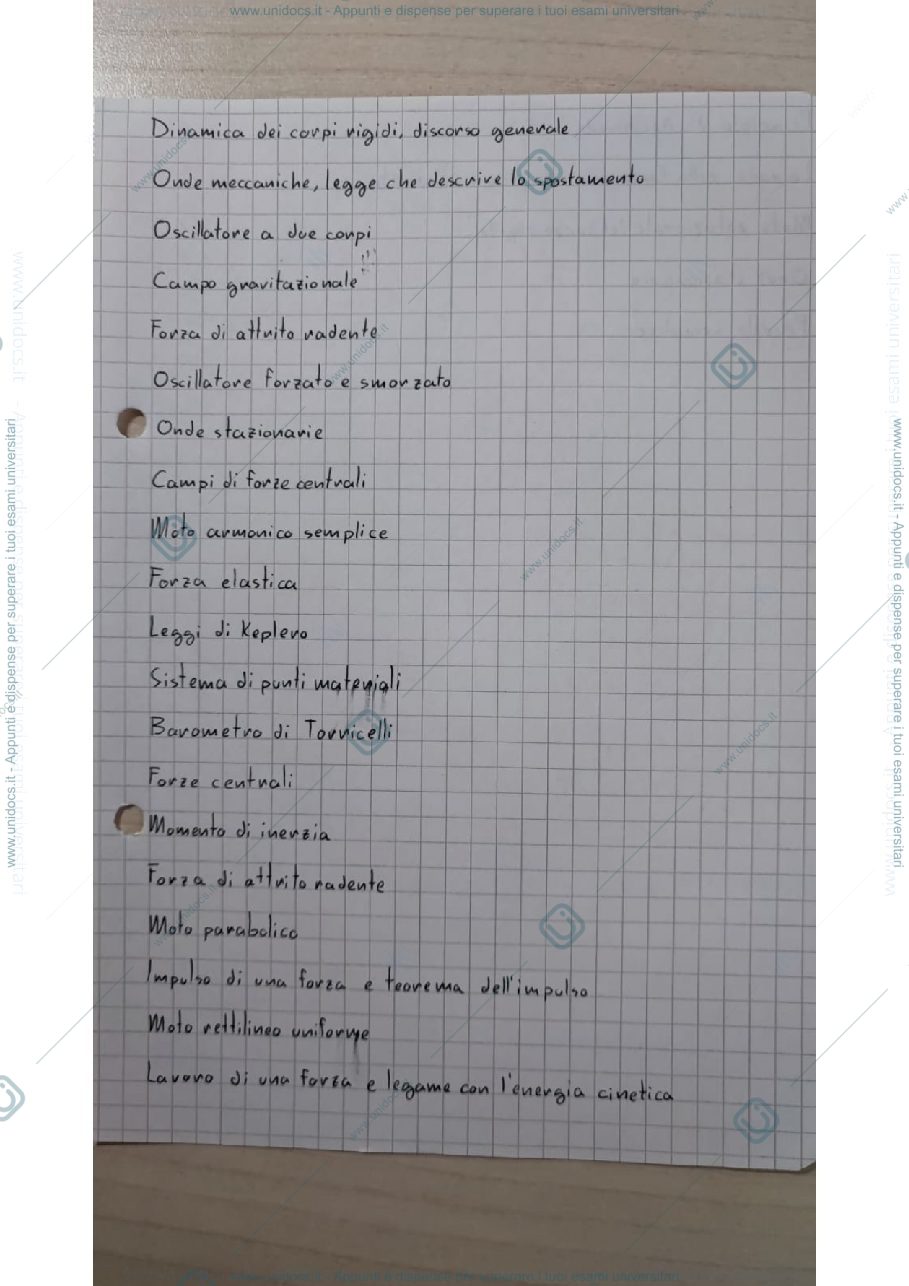 www.unidocs.it - Appunti e dispense per superare i tuoi esami universitari
Dinamica dei corpi rigidi, discorso generale
Onde meccaniche, legge che descrive lo spostamento
Oscillatore a due corpi
Campo gravitazionale
Forza di attrito radente
Oscillatore forzato e smorzato
Onde stazionarie
Campi di forze centrali
Moto armonico semplice
Forza elastica
Leggi di Keplero
Sistema di punti materiali
Barometro di Torricelli
Forze centrali
Momento di inerzia
Forza di attrito radente
Moto parabolico
Impulso di una forza e teorema dell'impulso
Moto rettilineo uniforme
Lavoro di una forza e legame con l'energia cinetica
www.unidocs.it - Appunti e dispense per superare i tuoi esami universitari
www.unidocs.it - Appunti e dispense per superare i tuoi esami universitari
www.unidocs.it - Appunti e dispense per superare i tuoi esami universitari